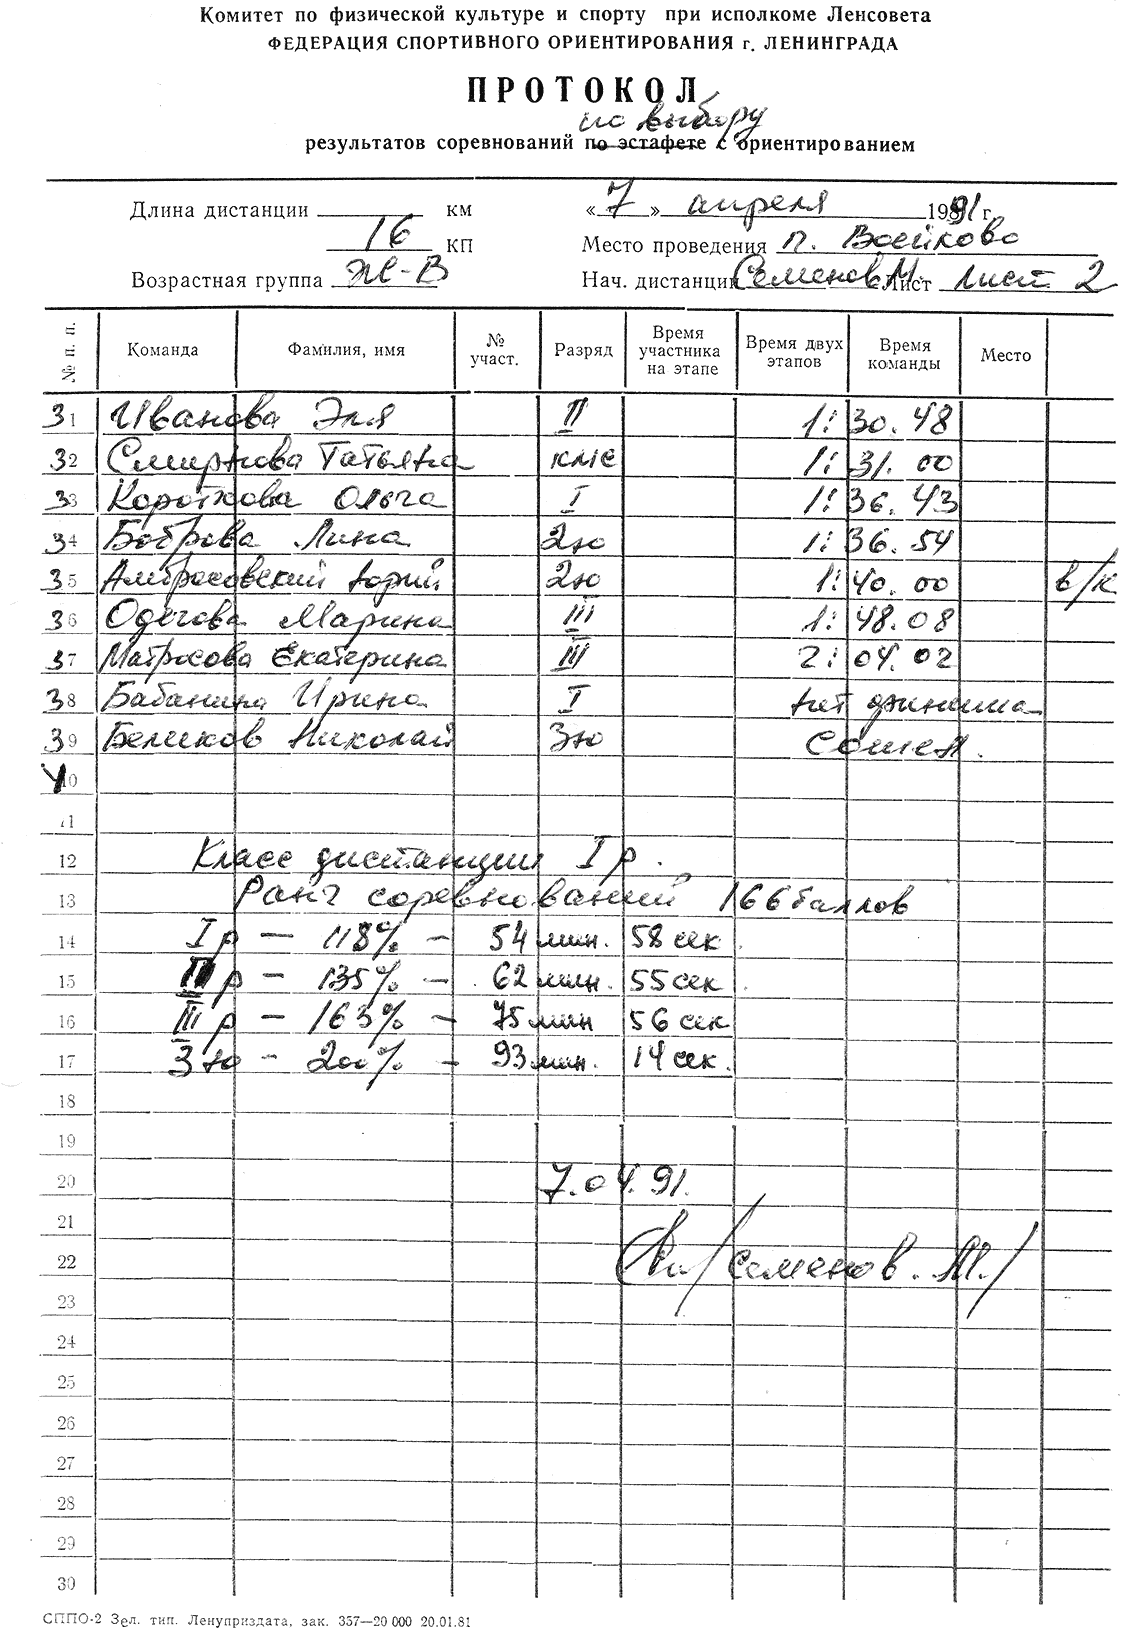 Комитет по физической культуре и спорту при исполкоме Ленсовета
ФЕДЕРАЦИЯ СПОРТИВНОГО ОРИЕНТИРОВАНИЯ г. ЛЕНИНГРАДА
ПРОТОКОЛ
по выбору
результатов соревнований по эстафете с ориентированием
Длина дистанции км «7» апреля 1991 г.
16 КП Место проведения п. Войеково
Возрастная группа Ж-В Нач. дистанции Семенов М. Лист Лист 2
№ п. п. Команда Фамилия, имя № участ. Разряд Время участника на этапе Время двух этапов Время команды Место
31 Иванова Эля II 1: 30. 48
32 Смирнова Татьяна кмс 1: 31. 00
33 Короткова Ольга I 1: 36. 43
34 Боброва Лина 2ю 1: 36. 54
35 Амбросовский Юрий 2ю 1: 40. 00 в/к
36 Одегова Марина III 1: 48. 08
37 Матросова Екатерина III 2: 04. 02
38 Бабанина Ирина I нет финиша
39 Беликов Николай 3ю Сошел.
40
11
12 Класс дистанции I р.
13 Ранг соревнований 166 баллов
14 I р — 118% — 54 мин. 58 сек.
15 II р — 135% — 62 мин. 55 сек.
16 III р — 163% — 75 мин 56 сек
17 3 ю — 200% — 93 мин. 14 сек.
18
19
20 7.04.91.
21
22 /Семенов. М./
23
24
25
26
27
28
29
30
СППО-2 Зел. тип. Ленуприздата, зак. 357—20 000 20.01.81